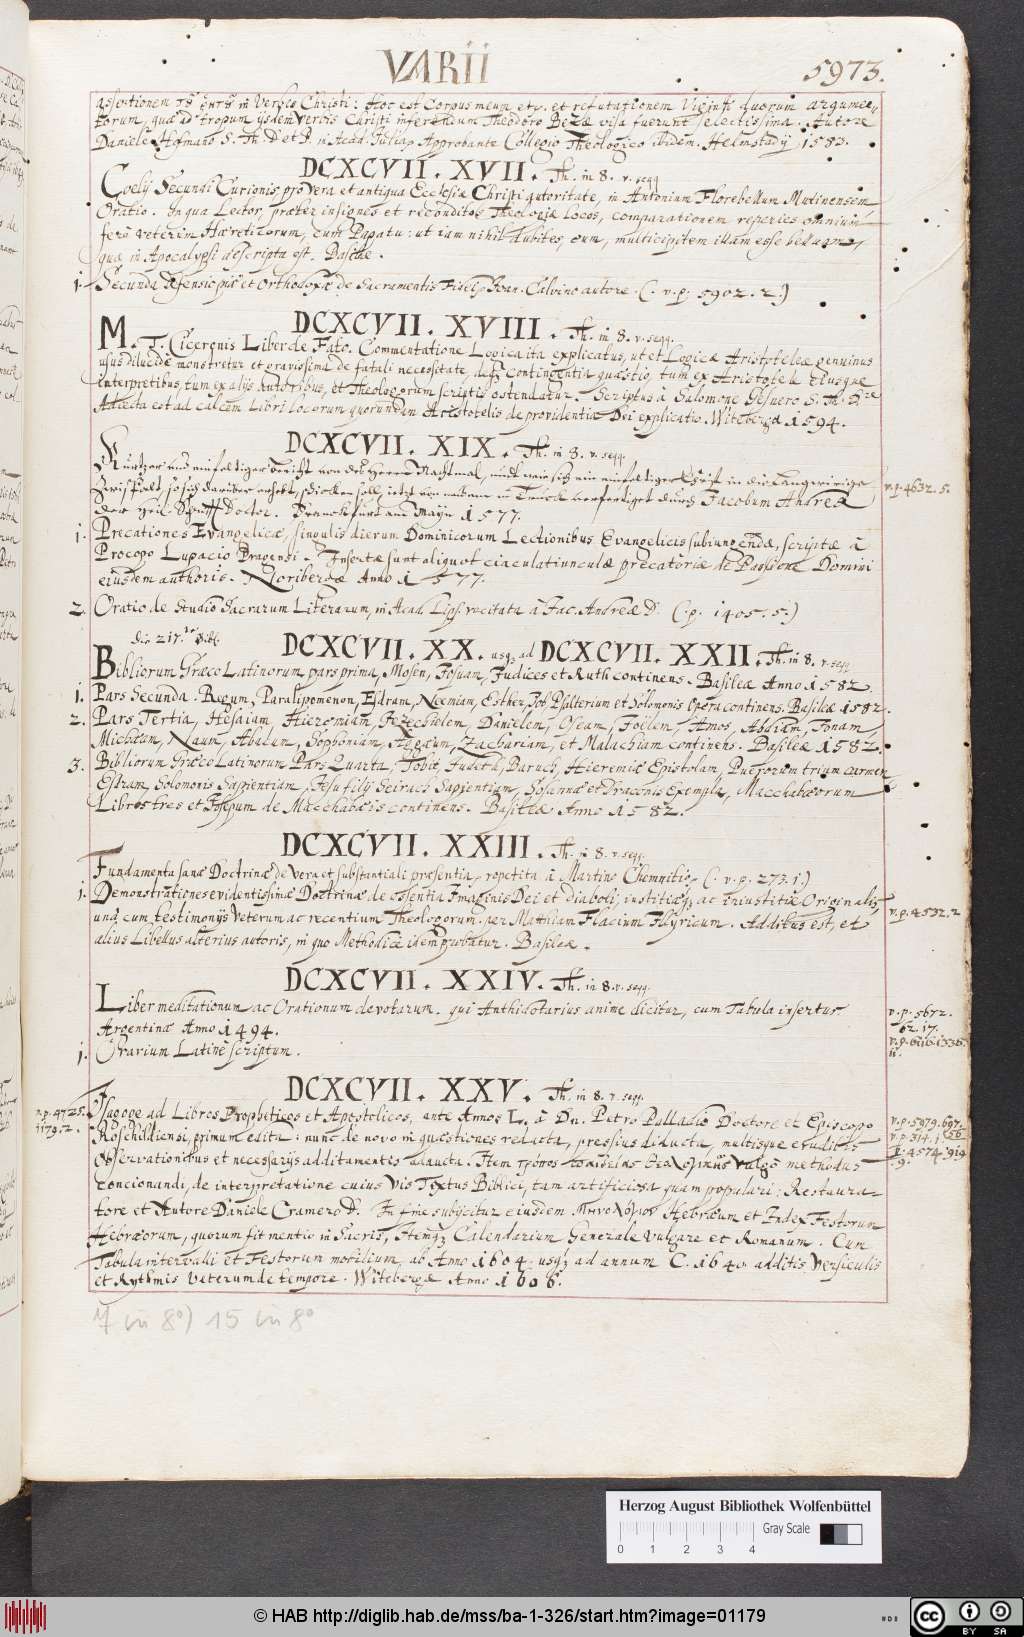 VARII
5973.
assertionem τȣ͂ ῥητȣ͂ in Verbis Christi: Hoc est Corpus meum etc. et refutationem Viginti duorum argumen-
torum, quae ad tropum ijsdem Verbis Christi inferendum Theodoro Bezae visa fuerunt selectissima. Autore
Daniele Hofmano S. Th. D. et P. in Acad. Julia, Approbante Collegio Theologico ibidem. Helmstadij 1583.
DCXCVII. XVII. Th. in 8. v. segq
Coelij Secundi Curionis pro Vera et antiqua Ecclesiae Christi autoritate, in Antonium Florebellum Mutinensem
Oratio. In qua Lector, praeter insignes et reconditos Theologiae locos, comparationem reperies omnium
ferè veterum Haereticorum, cum Papatu: ut iam nihil dubites, eum, multicipitem illam esse beluam,
quae in Apocalypsi descripta est. Basileae.
1. Secunda Defensio piae et Orthodoxae de Sacramentis Fidei, Joan. Calvino autore. (. v. p. 5902. 2.)
DCXCVII. XVIII. Th. in 8. v. segq.
M. T. Ciceronis Liber de Fato. Commentatione Logica ita explicatus, ut et Logicae Aristoteleae genuinus
usus dilucidè monstretur et gravissima de fatali necessitate, deq; contingentia quaestio, tum ex Aristotele eiusque
Interpretibus, tum ex alijs Autoribus, et Theologorum scriptis ostendatur. Scriptus à Salomone Gesnero S. Th. D.re
Adiecta est ad calcem Libri locorum quorundam Aristotelis de providentia Dei explicatio. Witebergae 1594.
DCXCVII. XIX. Th. in 8. v. segq.
Kurtzer und einfaltiger Bericht von des Herren Nachtmal, und wie sich ein einfaltiger Christ in die langwirige
Zwispalt, so sich darüber erhebt, schicken soll, jetzt von newem in Truck verfertiget durch Jacobum Andreae
der Heil. Schrifft Doctor. Franckfurt am Mayn 1577.
v. p. 4632. 5.
1. Precationes Evangelicae, singulis dierum Dominicorum Lectionibus Evangelicis subiungendae, scriptae à
Procopo Lupacio Pragensi. Insertae sunt aliquot eiaculatiunculae precatoriae de Passione Domini
eiusdem authoris. Noribergae Anno 1577.
2. Oratio de Studio Sacrarum Literarum, in Acad. Lips. recitata à Jac. Andreae D. (. p. 1405. 5.)
die 217.te Bibl.
DCXCVII. XX. usq; ad DCXCVII. XXII. Th. in 8. v. segq
Bibliorum Graeco Latinorum pars prima, Mosen, Josuam, Judices et Ruth continens. Basileae Anno 1582.
1. Pars Secunda. Regum, Paralipomenon, Esdram, Neemiam, Esther, Job Psalterium et Solomonis Opera continens. Basileae 1582.
2. Pars Tertia, Hesaiam, Hieremiam, Hezechielem, Danielem, Oseam, Joelem, Amos, Abdiam, Jonam,
Michaeam, Naum, Abacum, Sophoniam, Aggaeum, Zachariam, et Malachiam continens. Basileae 1582.
3. Bibliorum Graeco Latinorum Pars Quarta, Tobit, Judith, Baruch, Hieremiae Epistolam, Puerorum trium carmen
Esdram, Solomonis Sapientiam, Jesu filij Seirach Sapientiam, Sosannae et Draconis Exempla, Macchabaeorum
Libros tres et Josipum de Macchabaeis continens. Basileae Anno 1582.
DCXCVII. XXIII. Th. in 8. v. segq.
Fundamenta sanae Doctrinae de Vera et substantiali praesentia, repetita à Martino Chemnitio. (. v. p. 273. 1.)
1. Demonstrationes evidentissimae Doctrinae de essentia Imaginis Dei et diaboli, iustitiaeq; ac iniustitiae Originalis,
unà cum testimonijs Veterum ac recentium Theologorum. per Matthiam Flacium Illyricum. Additus est, et
alius Libellus alterius autoris, in quo Methodicè idem probatur. Basileae.
v. p. 4532. 2
DCXCVII. XXIV. Th. in 8. v. segq.
Liber meditationum ac Orationum devotarum. qui Anthidotarius anime dicitur, cum Tabula insertus
Argentinae Anno 1494.
1. Ovarium Latinè scriptum.
v. p. 5672.
62. 17.
v. p. 6116. 1336.
11.
DCXCVII. XXV. Th. in 8. v. segq.
v. p. 4725.
1179. 2.
Isagoge ad Libros Propheticos et Apostolicos, ante Annos L. à Dn. Petro Palladio Doctore et Episcopo
Roschildiensi, primum edita: nunc de novo in quaestiones redacta, pressius diducta, multisque eruditis
Observationibus et necessarijs additamentis adaucta. Item
Vulgò methodus
concionandi, de interpretatione cuius vis Textus Biblici, tam artificiosa quam populari: Restaura-
tore et Autore Daniele Cramero D. In fine subijcitur eiusdem Μηνολόγιον Hebraeum et Index Festorum
Hebraeorum, quorum fit mentio in Sacris, Itemq; Calendarium Generale Vulgare et Romanum. Cum
Tabula intervalli et Festorum mobilium, ab Anno 1604. usq; ad annum C. 1640. additis Versiculis
et Rythmis Veterum de tempore. Witebergae Anno 1606.
v. p. 5979. 697.
v. p. 314. 1. 56.
4574. 919
9.
7 in 8°) 15 in 8°
Herzog August Bibliothek Wolfenbüttel
Gray Scale
0 1 2 3 4
© HAB http://diglib.hab.de/mss/ba-1-326/start.htm?image=01179
CC BY SA